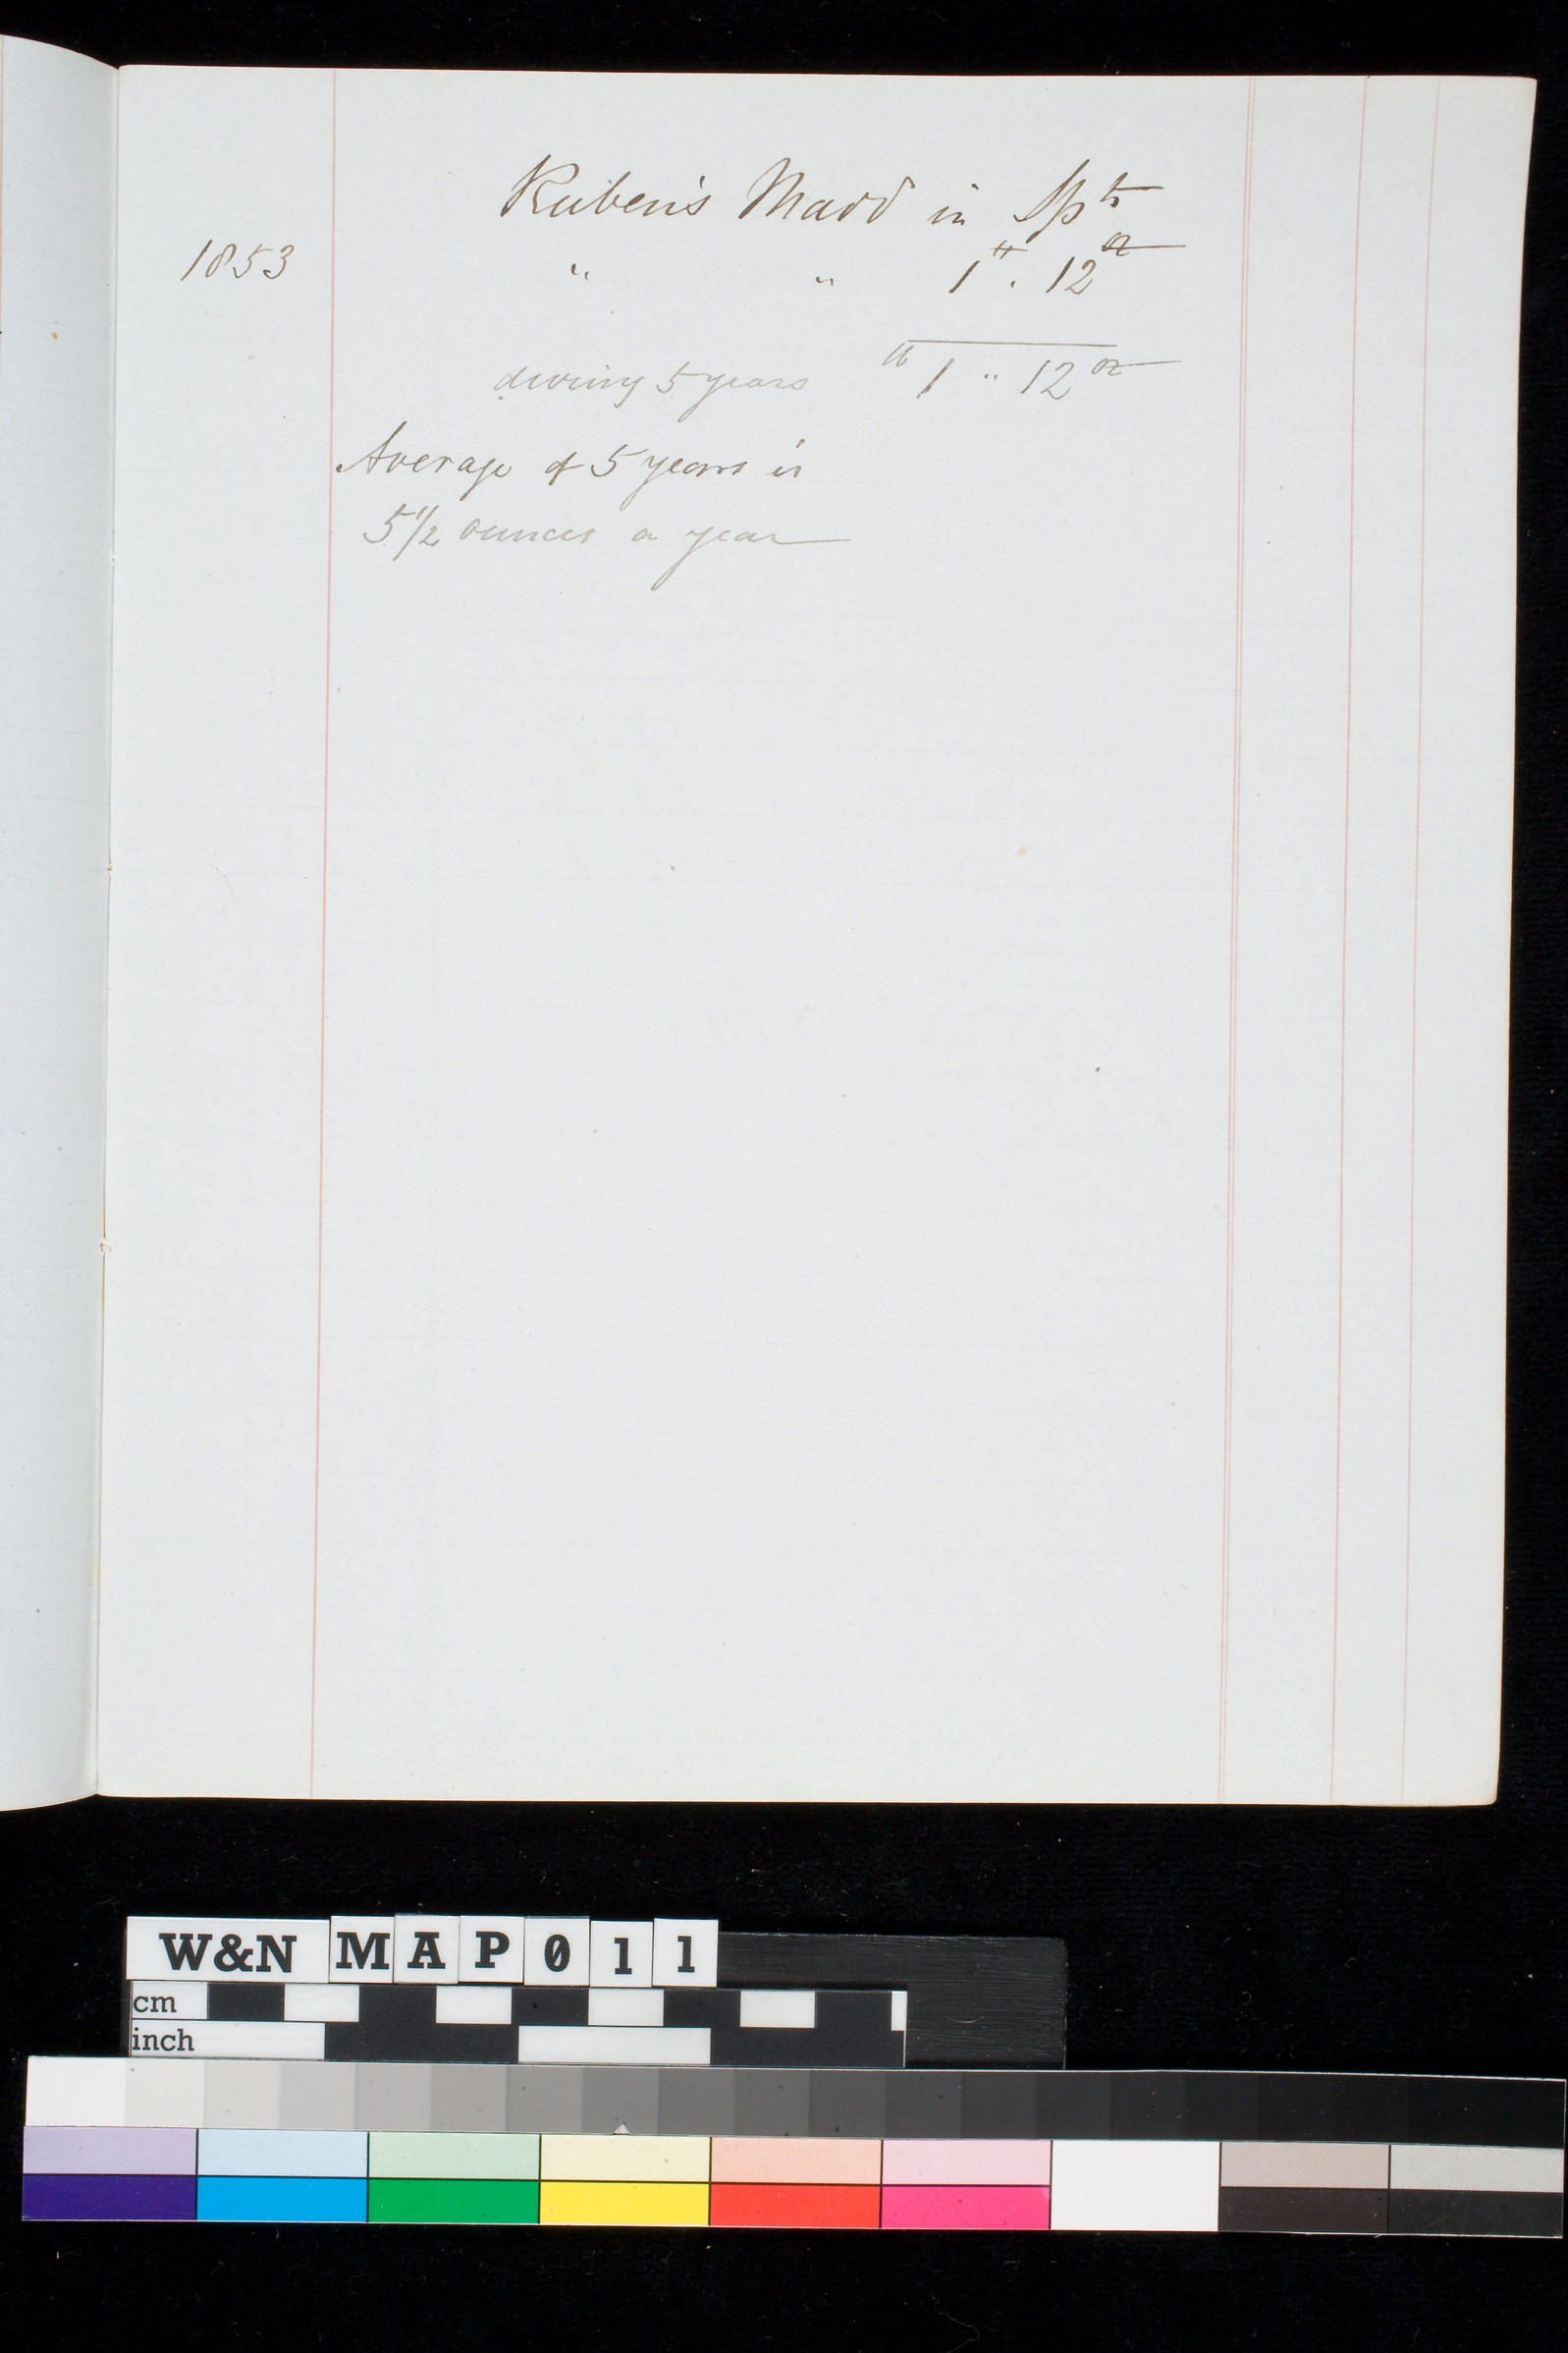 Ruben's Madd in Spts
1853 " " 1 lb . 12 oz
during 5 years lb 1 " 12 oz
Average of 5 years is
5 1/2 ounces a year
W&N MAP011
cm
inch